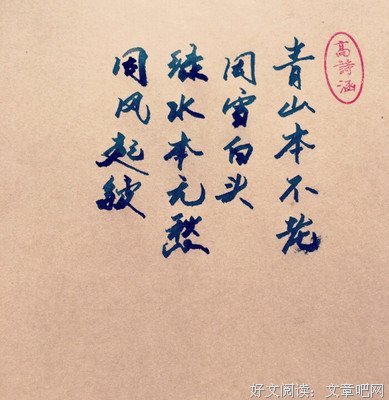 青山本不老
因雪白头
绿水本无愁
因风起皱
高詩涵
好文阅读：文章吧网